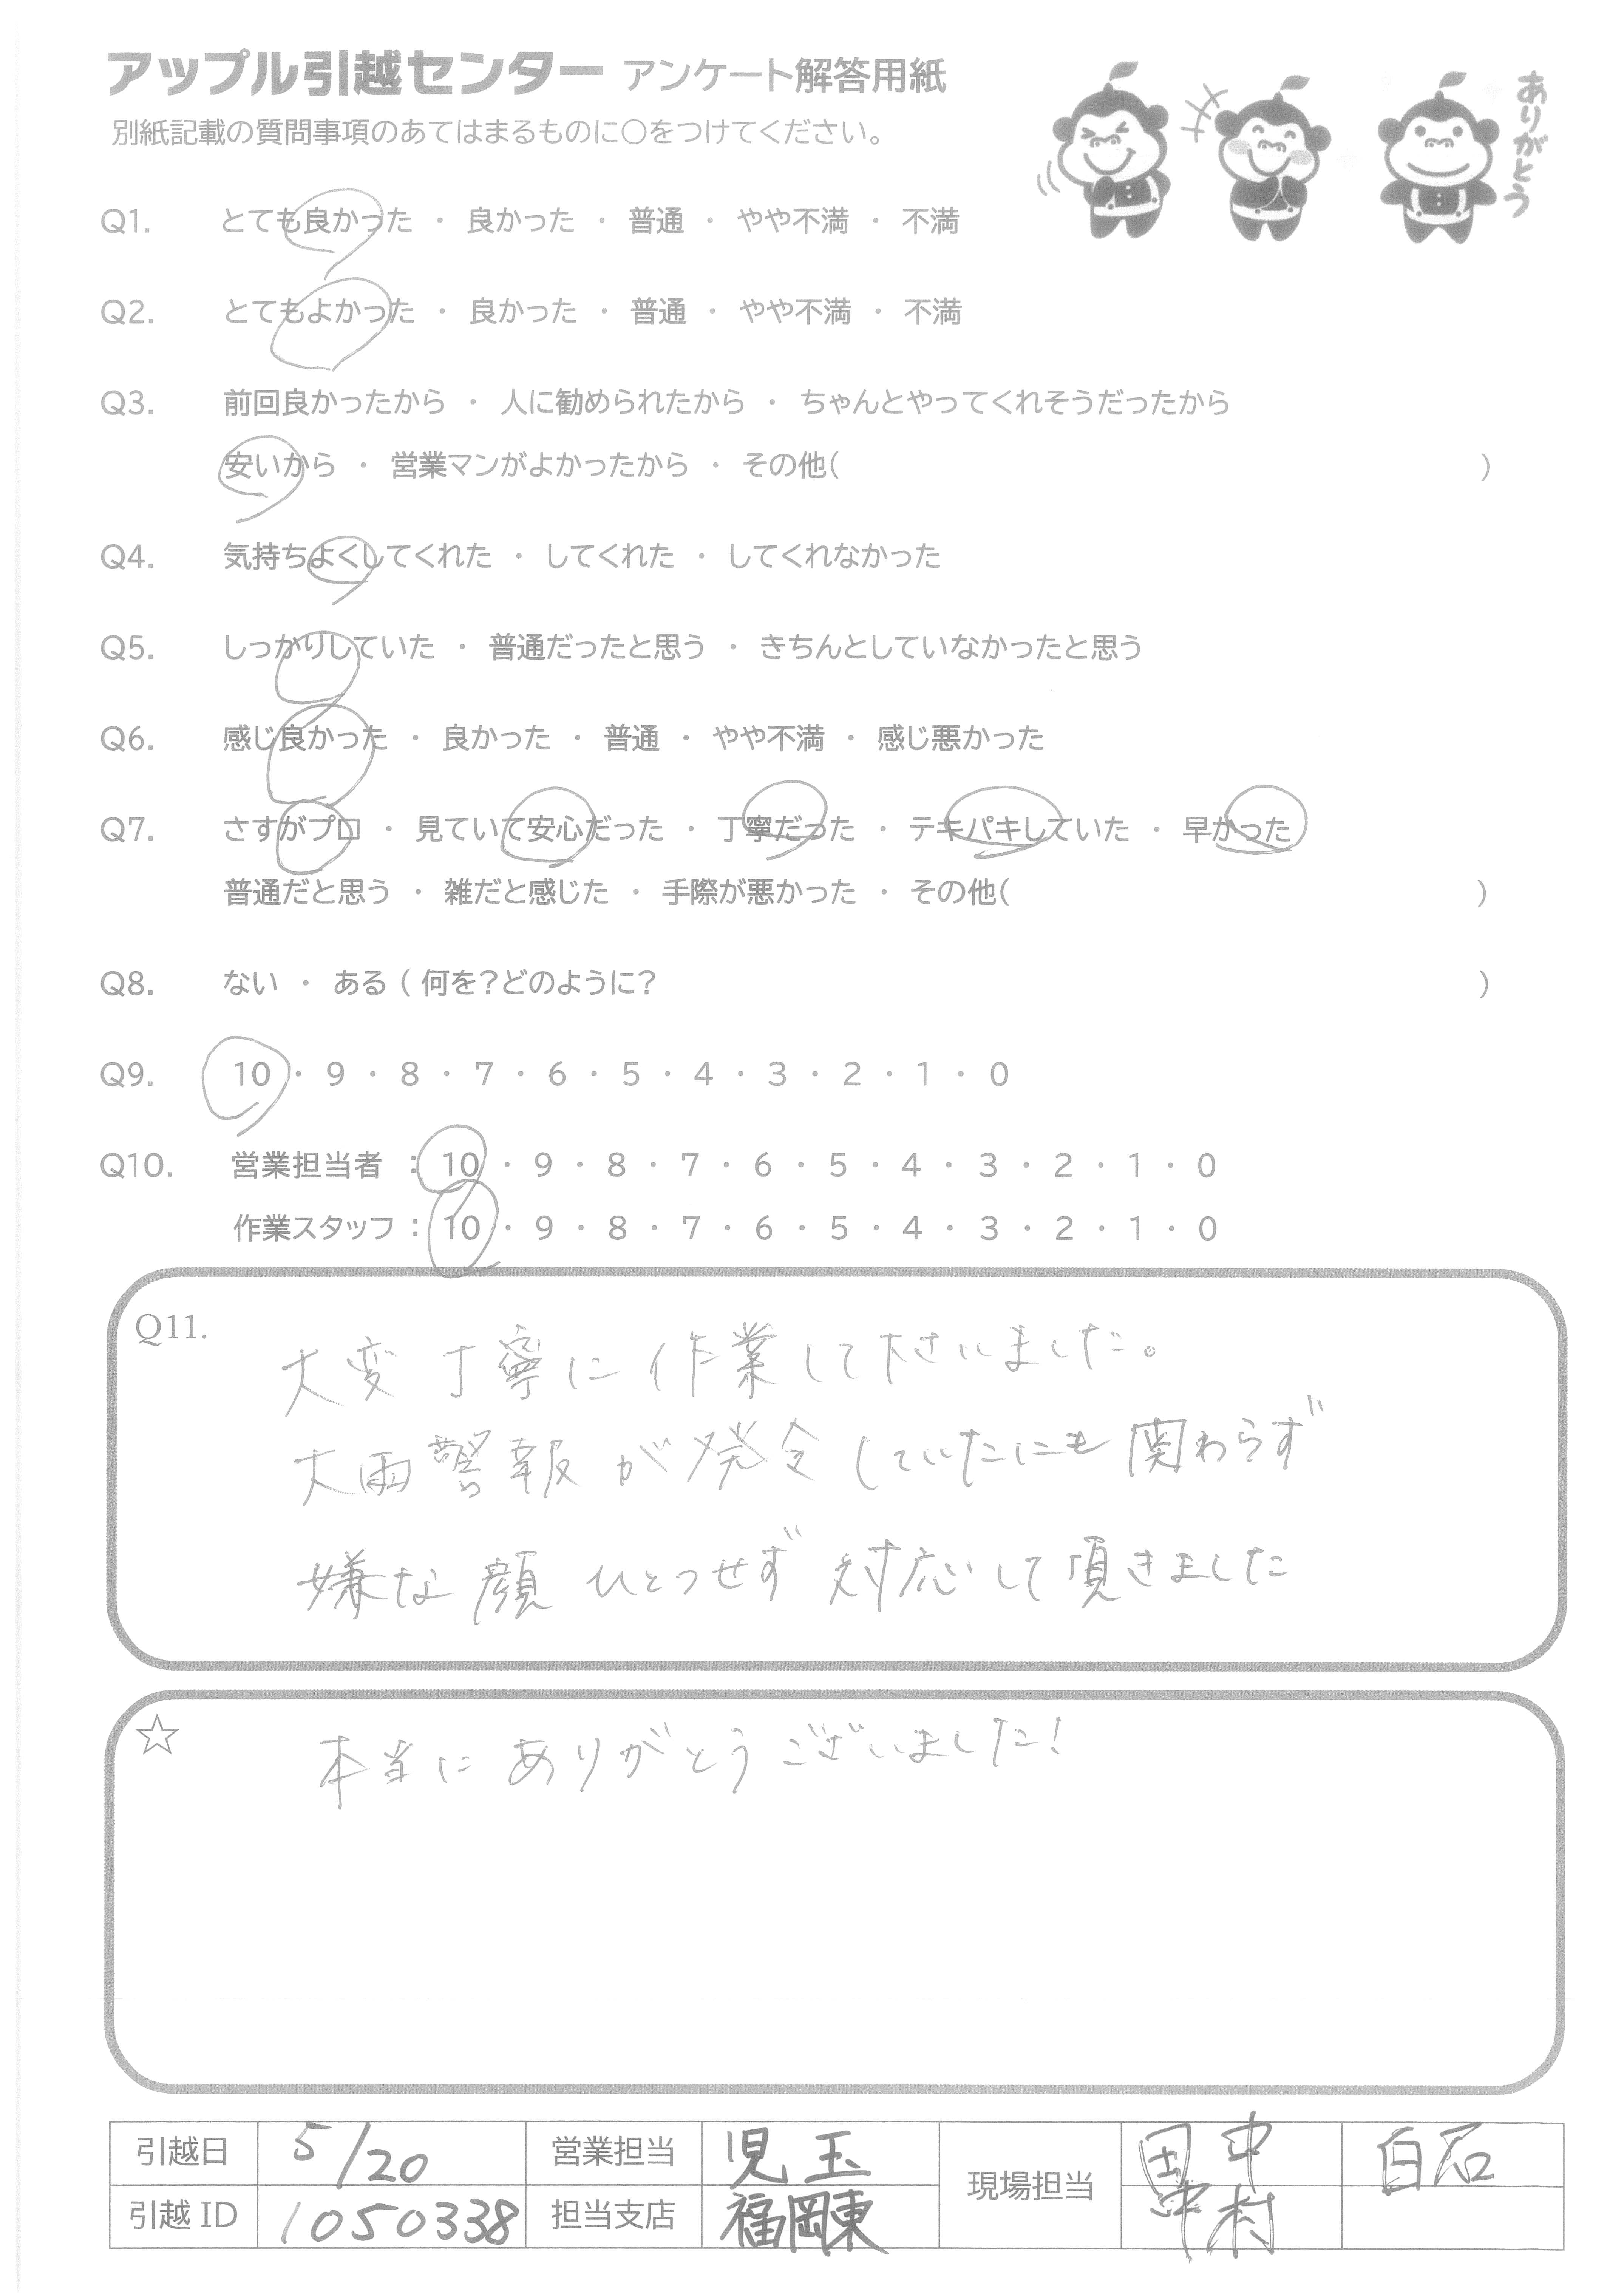 アップル引越センター アンケート解答用紙
ありがとう
別紙記載の質問事項のあてはまるものに○をつけてください。
Q1. とても良かった ・ 良かった ・ 普通 ・ やや不満 ・ 不満
Q2. とてもよかった ・ 良かった ・ 普通 ・ やや不満 ・ 不満
Q3. 前回良かったから ・ 人に勧められたから ・ ちゃんとやってくれそうだったから
安いから ・ 営業マンがよかったから ・ その他( )
Q4. 気持ちよくしてくれた ・ してくれた ・ してくれなかった
Q5. しっかりしていた ・ 普通だったと思う ・ きちんとしていなかったと思う
Q6. 感じ良かった ・ 良かった ・ 普通 ・ やや不満 ・ 感じ悪かった
Q7. さすがプロ ・ 見ていて安心だった ・ 丁寧だった ・ テキパキしていた ・ 早かった
普通だと思う ・ 雑だと感じた ・ 手際が悪かった ・ その他( )
Q8. ない ・ ある ( 何を?どのように? )
Q9. 10 ・ 9 ・ 8 ・ 7 ・ 6 ・ 5 ・ 4 ・ 3 ・ 2 ・ 1 ・ 0
Q10. 営業担当者 : 10 ・ 9 ・ 8 ・ 7 ・ 6 ・ 5 ・ 4 ・ 3 ・ 2 ・ 1 ・ 0
作業スタッフ : 10 ・ 9 ・ 8 ・ 7 ・ 6 ・ 5 ・ 4 ・ 3 ・ 2 ・ 1 ・ 0
Q11. 大変丁寧に作業して下さいました。
大雨警報が発令していたにも関わらず
嫌な顔ひとつせず対応して頂きました
☆ 本当にありがとうございました!
引越日 5/20 営業担当 児玉 現場担当 田中 白石
引越ID 1050338 担当支店 福岡東 中村